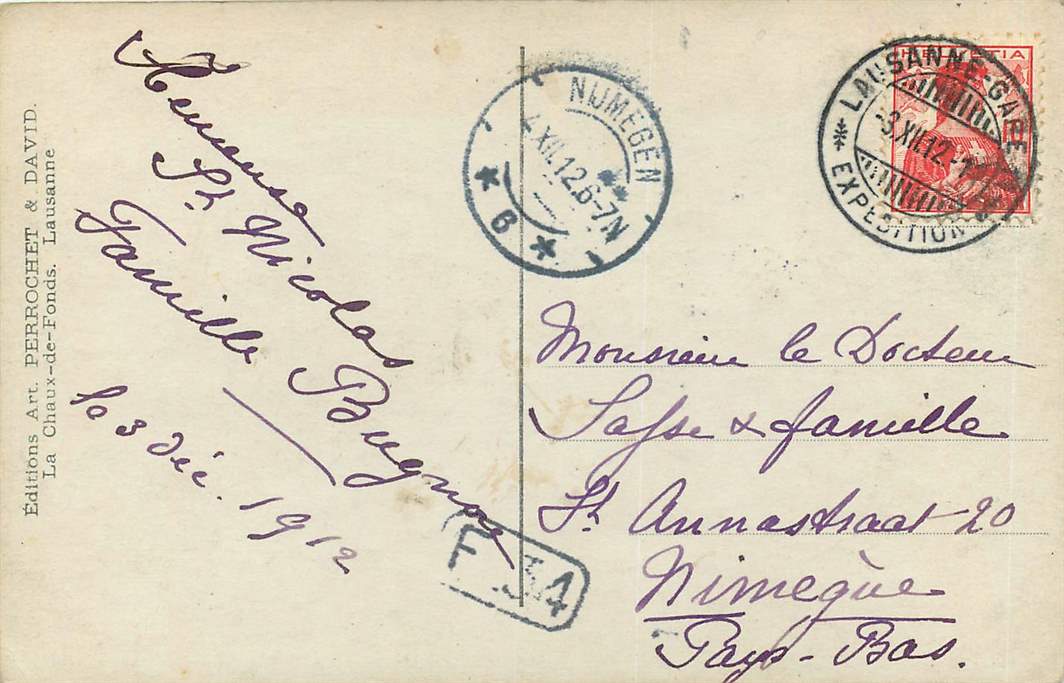 Éditions Art. PERROCHET & DAVID.
La Chaux-de-Fonds. Lausanne
Heureuse
St Nicolas
Famille Bugnon
le 3 déc. 1912
NIJMEGEN
4 XII.12.6-7N
6
F 34
HELVETIA
LAUSANNE-GARE
-3.XII.12.
EXPEDITION
Monsieur le Docteur
Sasse & famille
St Annastraat 20
Nimègue
Pays-Bas.